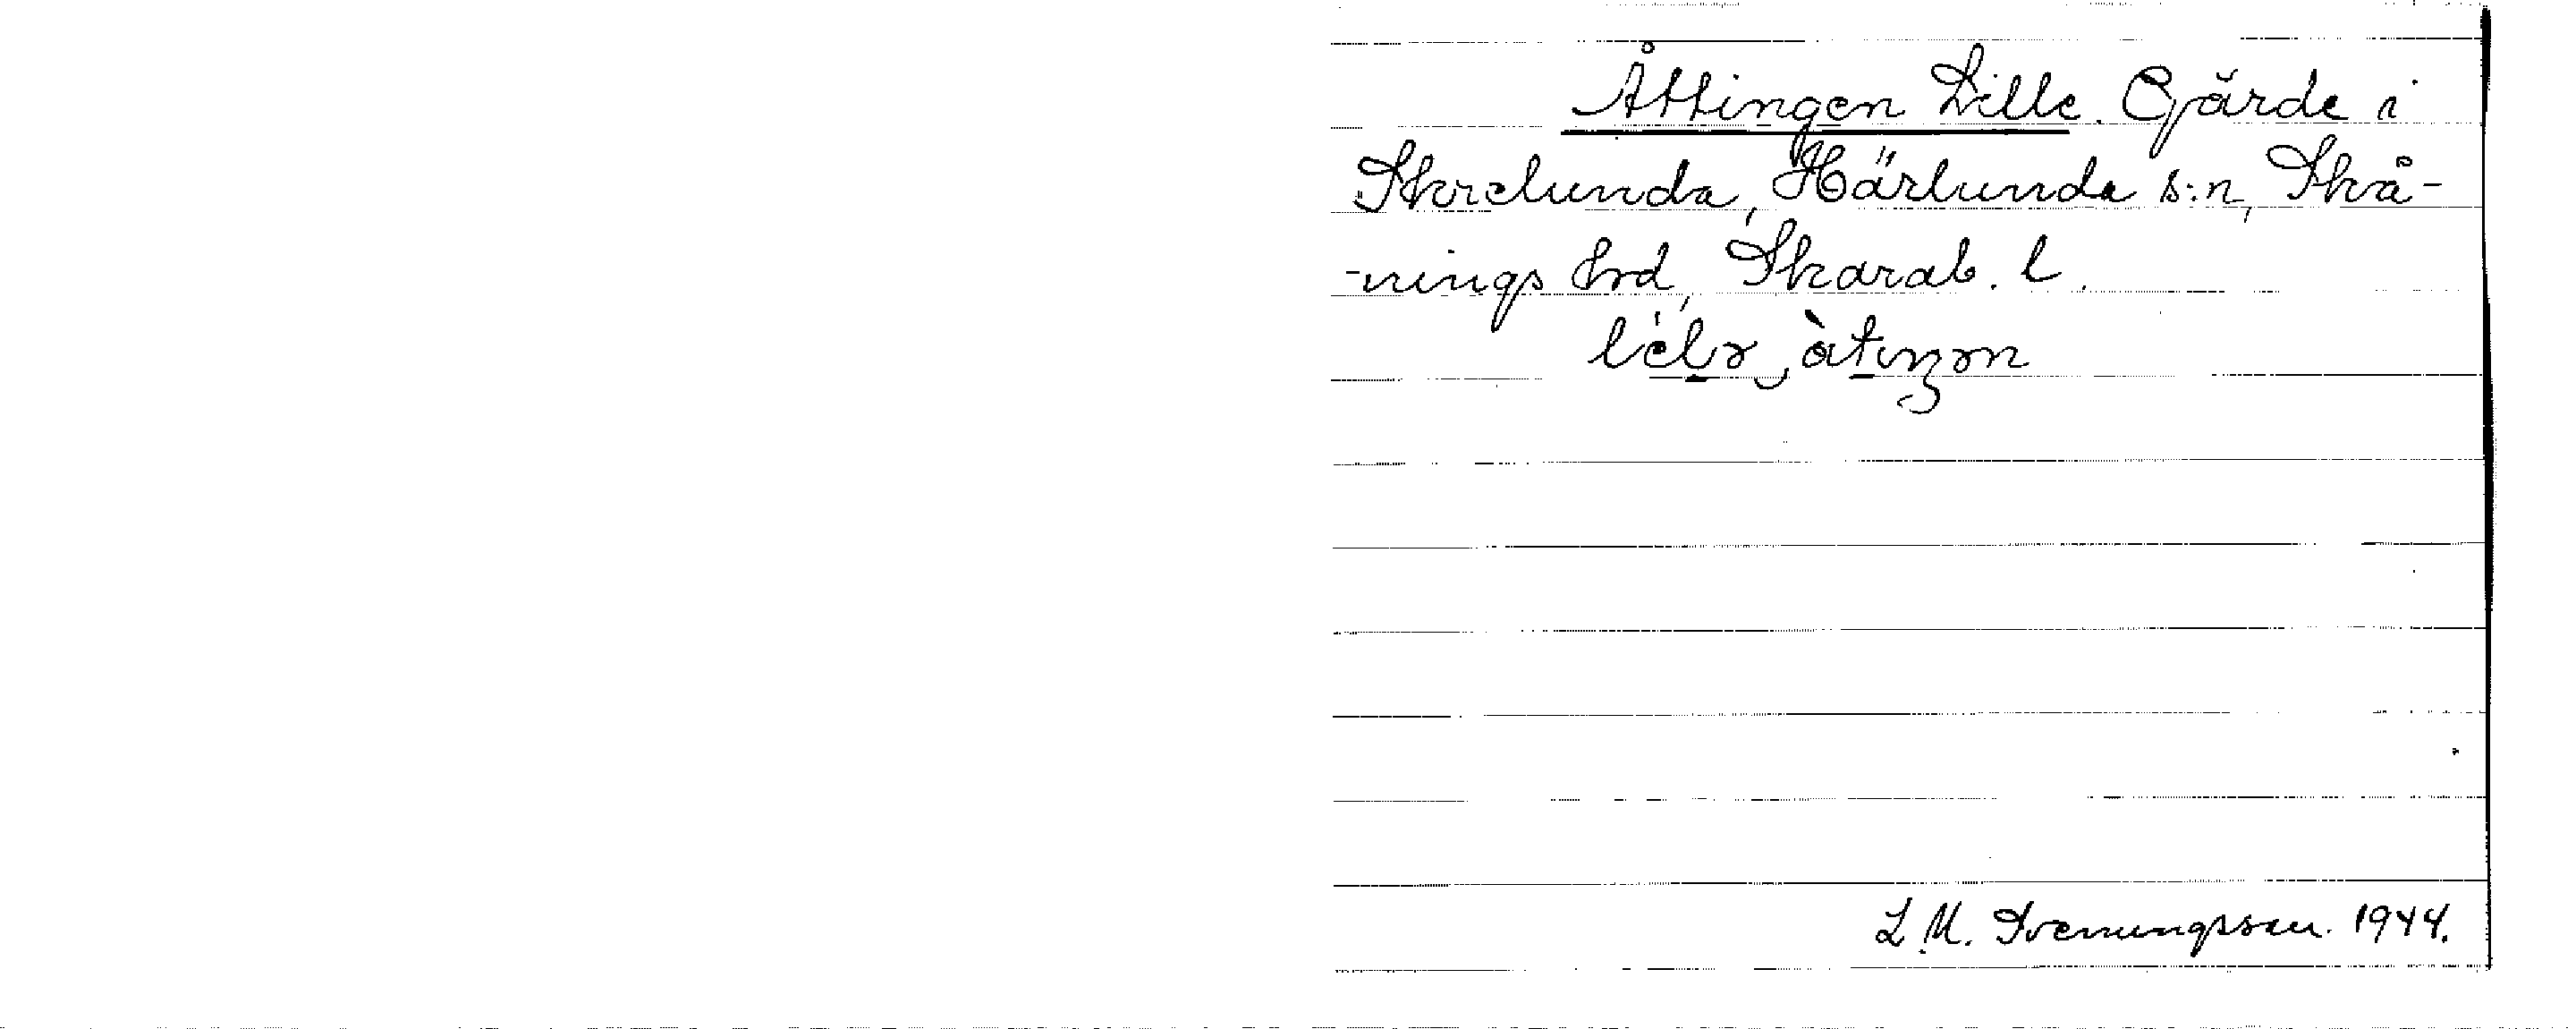 Åttingen Lille. Gärde i
Skrelunda, Härlunda s:n, Skå-
-nings hrd, Skarab. l.
L M. Svenungsson. 1944.